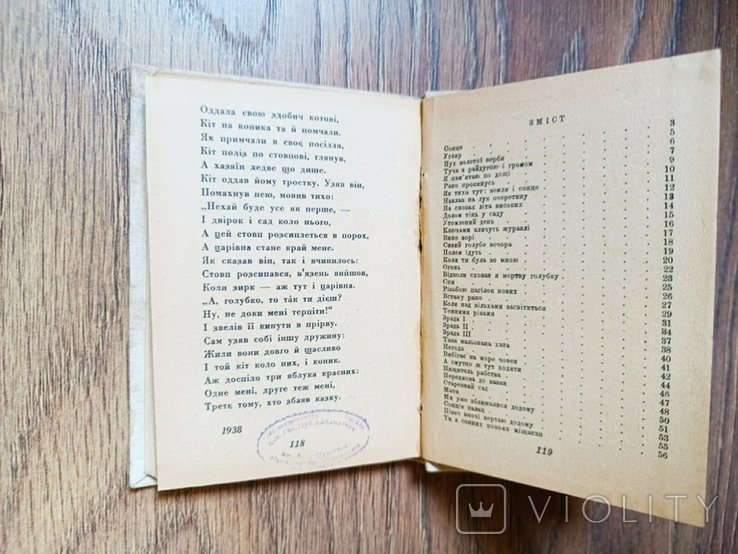 Оддала свою здобич котові,
Кіт на коника та й помчали.
Як примчали в своє посілля,
Кіт поліз по стовпові, глянув,
А хазяїн ледве що дише.
Кіт оддав йому тростку. Узяв він,
Помахнув нею, мовив тихо:
„Нехай буде усе як перше, —
І двірок і сад коло нього,
А цей стовп розсиплеться в порох,
А царівна стане край мене.
Як сказав він, так і вчинилось:
Стовп розсипався, в'язень вийшов,
Коли зирк — аж тут і царівна.
„А, голубко, то та́к ти дієш?
Ну, не доки мені терпіти!"
І звелів її кинути в прірву.
Сам узяв собі іншу дружину:
Жили вони довго й щасливо
І той кіт коло них, і коник.
Аж доспіло три яблука красних:
Одне мені, друге теж мені,
Третє тому, хто збавив казку.
1938
118
ЗМІСТ
Сонце
Угляр
Пух золотої верби
Туча з райдугою і громом
Я пам'ятаю по дощі
Рано прокинусь
Як тихо тут: земля і сонце
Наклав на лук очеретину
На сновах літа високих
Долом тінь у саду
Утомлений день
Ключами кличуть журавлі
Вино зорі
Сивий голубе вечора
Полем ідуть
Коли ти була зо мною
Огонь
Відколи сховав я мертву голубку
Сни
Різьбою пагілок нових
Встану рано
Коли над вільхами засвітиться
Темними ріками
Зрада I
Зрада II
Зрада III
Тана мальована хата
Негода
Вибігає на море човен
А смутно ж тут ходити
Нищитель рабства
Передмова до казки
Старезний сад
Мати
Ми уже зближалися додому
Сонців палац
Пізно вночі вертаю додому
Ти в сонних поломі міщанки
3
5
6
7
9
10
11
12
13
14
15
16
17
18
19
20
22
23
25
26
27
28
30
31
35
36
37
38
40
41
42
44
46
47
48
50
51
53
55
56
119
VIOLITY